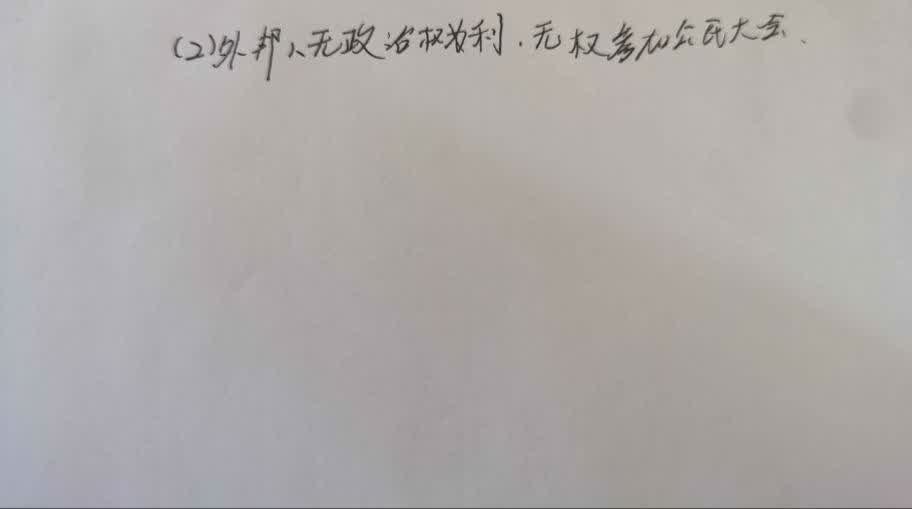 (2)外邦人无政治权为利.无权参加公民大会.